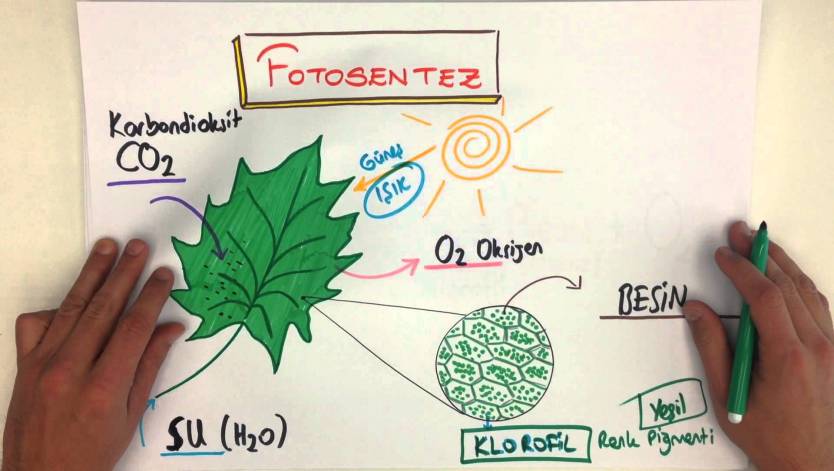 FOTOSENTEZ
Karbondioksit
CO2
Güneş
IŞIK
O2 Oksijen
BESİN
SU (H2O)
KLOROFİL
Yeşil
Renk Pigmenti